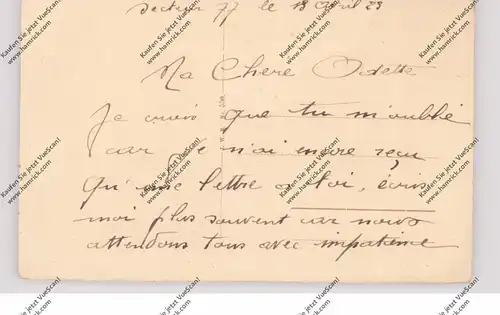 Secteur 77 le 13 Avril 23
Ma Chere Odette
Je crois que tu m'oublie
car je n'ai encore reçu
qu'une lettre de toi, écris
moi plus souvent car nous
attendons tous avec impatience
Kaufen Sie jetzt VueScan!
www.hamrick.com